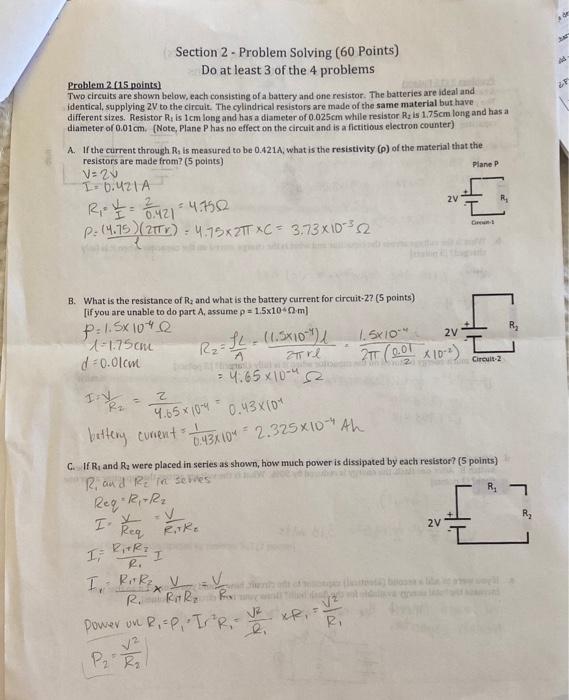 Section 2 - Problem Solving (60 Points)
Do at least 3 of the 4 problems
Problem 2 (15 points)
Two circuits are shown below, each consisting of a battery and one resistor. The batteries are ideal and
identical, supplying 2V to the circuit. The cylindrical resistors are made of the same material but have
different sizes. Resistor R₁ is 1cm long and has a diameter of 0.025cm while resistor R₂ is 1.75cm long and has a
diameter of 0.01cm. (Note, Plane P has no effect on the circuit and is a fictitious electron counter)
A. If the current through R₁ is measured to be 0.421A, what is the resistivity (ρ) of the material that the
resistors are made from? (5 points)
Plane P
2V
R₁
Circuit-1
V=2V
I=0.421A
R₁=V/I=2/0.421=4.75Ω
ρ=(4.75)(2πr)/l=4.75×2π×C=3.73×10⁻³Ω
B. What is the resistance of R₂ and what is the battery current for circuit-2? (5 points)
[if you are unable to do part A, assume ρ = 1.5x10⁻⁴Ω·m]
2V
R₂
Circuit-2
ρ=1.5×10⁻⁴Ω
l=1.75cm
d=0.01cm
R₂=ρL/A=(1.5×10⁻⁴)l/2πrl=1.5×10⁻⁴/2π(0.01/2×10⁻²)
=4.65×10⁻⁴Ω
I=V/R₂=2/4.65×10⁻⁴=0.43×10⁴
battery current=1/0.43×10⁴=2.325×10⁻⁴Ah
C. If R₁ and R₂ were placed in series as shown, how much power is dissipated by each resistor? (5 points)
R₁
R₂
2V
R₁ and R₂ in series
Req=R₁+R₂
I=V/Req=V/R₁+R₂
I₁=R₁+R₂/R₁ I
I₁=R₁+R₂/R₁×V/R₁+R₂=V/R₁
Power on R₁=P₁=I₁²R₁=V²/R₁²×R₁=V²/R₁
P₂=V²/R₂